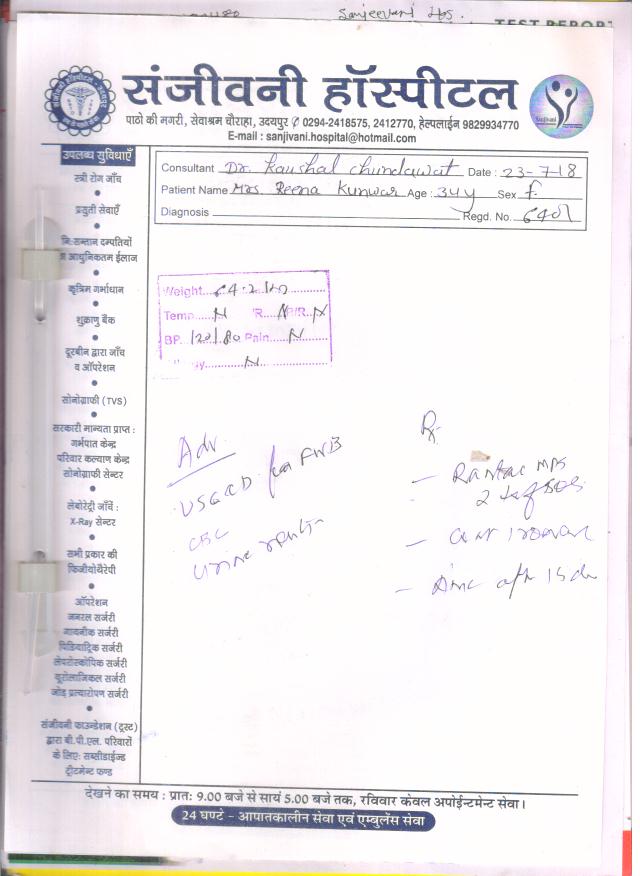 Sanjeevani Hos.
TEST REPORT
संजीवनी हॉस्पीटल
पाठो की मगरी, सेवाश्रम चौराहा, उदयपुर ✆ 0294-2418575, 2412770, हेल्पलाईन 9829934770
E-mail : sanjivani.hospital@hotmail.com
Sanjivani
उपलब्ध सुविधाएँ
स्त्री रोग जाँच
प्रसुती सेवाएँ
नि:सन्तान दम्पतियों
आधुनिकतम ईलाज
कृत्रिम गर्भाधान
शुक्राणु बैंक
दूरबीन द्वारा जाँच
व ऑपरेशन
सोनोग्राफी (TVS)
सरकारी मान्यता प्राप्त :
गर्भपात केन्द्र
परिवार कल्याण केन्द्र
सोनोग्राफी सेन्टर
लेबोरेट्री जाँचें :
X-Ray सेन्टर
सभी प्रकार की
फिजीयोथैरेपी
ऑपरेशन
जनरल सर्जरी
गायनीक सर्जरी
पिडियाट्रिक सर्जरी
लेपरोस्कोपिक सर्जरी
यूरोलाजिकल सर्जरी
जोड़ प्रत्यारोपण सर्जरी
संजीवनी फाउन्डेशन (ट्रस्ट)
द्वारा बी.पी.एल. परिवारों
के लिए: सब्सीडाईज्ड
ट्रीटमेन्ट फण्ड
Consultant Dr. Kaushal Chundawat Date : 23-7-18
Patient Name Mrs. Reena Kunwar Age : 34y Sex f.
Diagnosis Regd. No.
Weight 64.2
Temp N R. N P/R. N
BP. 120/80 Pain N
N
Adv.
USG for FWB
CBC
Urine
Rx
- Rantac
2
-
- after 15
देखने का समय : प्रातः 9.00 बजे से सायं 5.00 बजे तक, रविवार केवल अपोईन्टमेन्ट सेवा।
24 घण्टे - आपातकालीन सेवा एवं एम्बुलेंस सेवा